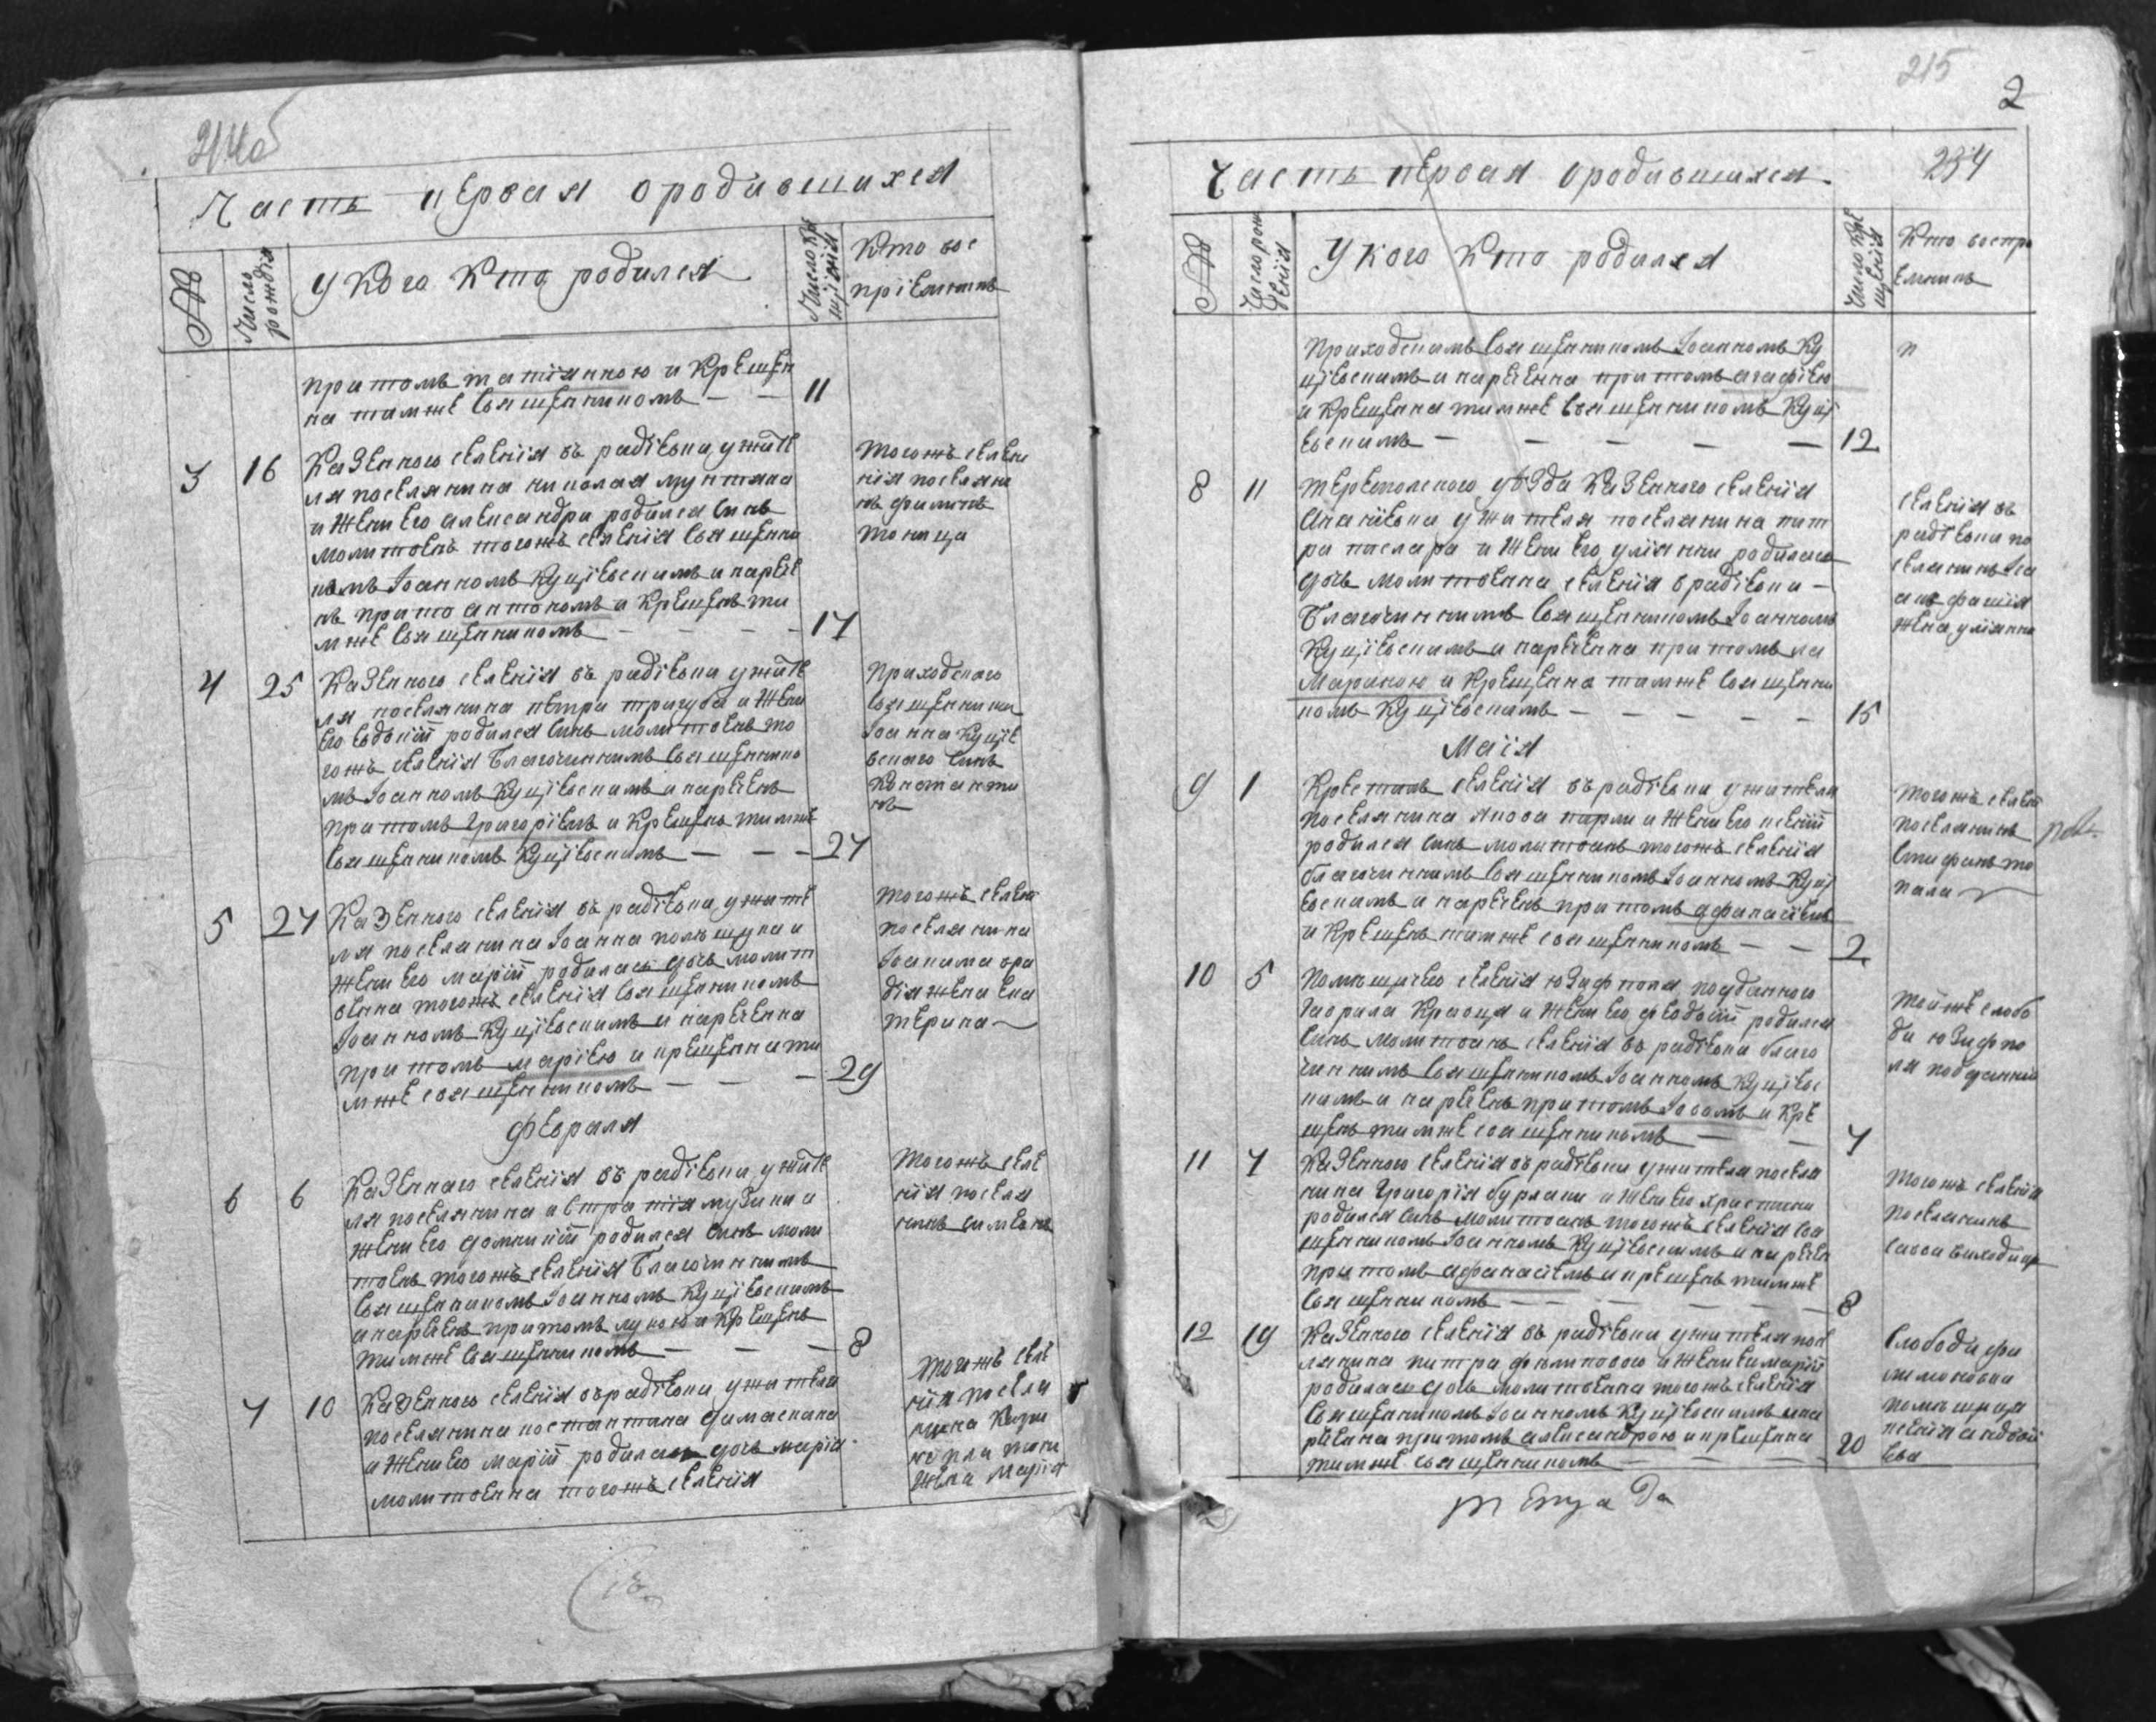 214об
Часть первая ородившихся
№
Число рождія
У Кого Кто родился
Число Кре щенія
Кто вос пріемникъ
при томъ татіянною и Крещен
на тамже священникомъ — — 11
3 16 Казенного селенія въ радіевки у жите
ля поселянина николая мунтяна
и жени его александри родился синъ
молитвенъ тогожъ селенія священни
комъ Іоанномъ Куціевскимъ и наречe
нъ при то антономъ и Крещенъ ти
мже священникомъ — — — 17
тогожъ селен
нія поселяни
нъ филипъ
тоница
4 25 Казенного селенія въ радіевки у жите
ля поселянина петра тригуба и жени
его евдокіи родился синъ молитвенъ то
гожъ селенія Благочиннимъ священнико
мъ Іоанномъ Куціевскимъ и нареченъ
при томъ Григоріемъ и Крещенъ тимже
священникомъ Куціевскимъ — — — 27
приходского
священника
Іоанна Куціе
вскаго синъ
Константи
нъ
5 27 Казенного селенія въ радіевки у жите
ля поселянина Іоанна полищука и
жени его маріи родилась дочь молит
венна тогожъ селенія священникомъ
Іоанномъ Куціевскимъ и нареченна
при томъ маріею и крещенна ти
мже священникомъ — — — 29
тогожъ селені
поселянина
Іоакима
дія жена ека
терина
февраля
6 6 Казенного селенія въ радіевки у жите
ля поселянина
жени его домникіи родился синъ моли
твенъ тогожъ селенія Благочиннимъ
священникомъ Іоанномъ Куціевскимъ
и нареченъ притомъ лукою и Крещенъ
тимже священникомъ — — — 8
тогожъ селе
нія поселя
нинъ симеонъ
7 10 Казенного селенія въ радіевки у жителя
поселянина константина дамаскана
и жени его маріи родилась дочь марія
молитвенна тогожъ селенія
тогожъ селе
нія поселя
нина
жена Марія
215
2
Часть первая ородившихся
234
№
Число рож денія
У Кого Кто родился
Число Кре щенія
Кто воспрі емникъ
Приходскимъ священникомъ Іоанномъ Ку
ціевскимъ и нареченна притомъ агафіею
и Крещенна тимже священникомъ Куці
евскимъ — — — — — 12
8 11 Терасполского уѣзда Казенного селенія
Ананіевки у жителя поселянина пит
ра и жени его уліянни родилась
дочь молитвенна селенія врадіевки —
Благочиннимъ священникомъ Іоанномъ
Куціевскимъ и нареченна при томъ
Мариною и Крещенна тамже священни
комъ Куціевскимъ — — — — — 15
селенія въ
радіевки по
селянинъ
жена уліянна
Маія
9 1 Крестинъ селенія въ радіевки у жителя
поселянина якова и жени его
родился синъ молитвенъ тогожъ селенія
благочиннимъ священникомъ Іоанномъ Куці
евскимъ и нареченъ при томъ афанасіемъ
и Крещенъ тимже священникомъ — — 2
тогожъ селені
поселянинъ
Стифанъ
10 5 Помѣщичего селенія юзифполя подданного
Гаврила Кравца и жени его феодосіи родился
синъ молитвенъ селенія въ радіевки благо
чиннимъ священникомъ Іоанномъ Куціевс
кимъ и нареченъ притомъ Іововъ и Кре
щенъ тимже священникомъ — — 7
тойже слобо
ди юзифпо
ля подданній
11 7 Казенного селенія въ радіевки у жителя поселя
нина Григорія бурлаки и жени его христини
родился синъ молитвенъ тогожъ селенія свя
щенникомъ Іоанномъ Куціевскимъ и наречен
при томъ афанасіемъ и крещенъ тимже
священникомъ — — — — — 8
тогожъ селенія
поселянинъ
савва
12 19 Казенного селенія въ радіевки у жителя посе
лянина питра филипового и жени его маріи
родилась дочь молитвенна тогожъ селенія
священникомъ Іоанномъ Куціевскимъ и на
реченна притомъ александрою и крещенна
тимже священникомъ — — — 20
слободи фи
лимоновки
помѣщица